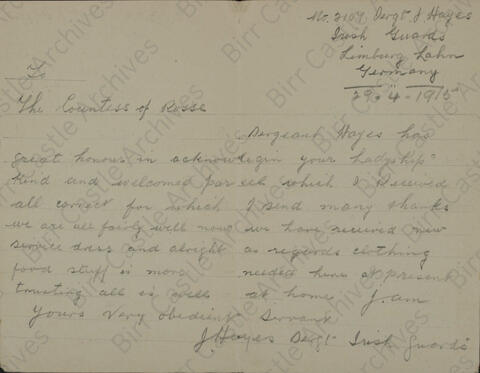 No. 2107 Sergt J. Hayes
Irish Guards
Limburg Lahn
Germany
29.4.1915
To
The Countess of Rosse
Sergeant Hayes has
great honour in acknowlegin your Ladyship
kind and welcomed parcel which I received
all correct for which I send many thanks
we are all fairly well now we have received new
service dress and alright as regards clothing
food stuff is more needed here at present
trusting all is well at home I am
Yours Very Obedient Servant
J Hayes Sergt Irish Guards
Birr Castle Archives